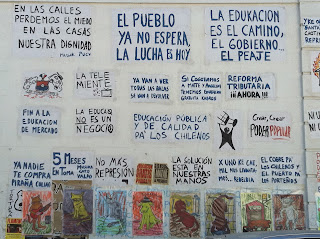 EN LAS CALLES
PERDEMOS EL MIEDO
EN LAS CASAS
NUESTRA DIGNIDAD
EL PUEBLO
YA NO ESPERA,
LA LUCHA ES HOY
LA EDUKACION
ES EL CAMINO,
EL GOBIERNO...
EL PEAJE
LA TELE
MIENTE
YA VAN A VER
TODAS LAS BALAS
SE VAN A DEVOLVER
SI COBRARAMOS
A MATTE Y ANGELINI
TENDRIAMOS EDUKACION
GRATUITA
REFORMA
TRIBUTARIA
¡¡¡AHORA!!!
FIN A LA
EDUCACIÓN
DE MERCADO
LA EDUCACIÓ
NO ES UN
NEGOCIO
EDUCACIÓN PÚBLICA
Y DE CALIDAD
PA' LOS CHILENOS
Crear, Crear
PODER POPULAR
YA NADIE
TE COMPRA
PIRAÑA CULIAO
5 MESES
EN TOMA
NO MÁS
REPRESIÓN
LA SOLUCIÓN
ESTÁ EN
NUESTRAS
MANOS
X UNO KE CAE
MIL NOS LEVANTA
MOS... REBELDIA
EL COBRE PA'
LOS CHILENOS
Y EL PUERTO PA
LOS PORTEÑOS